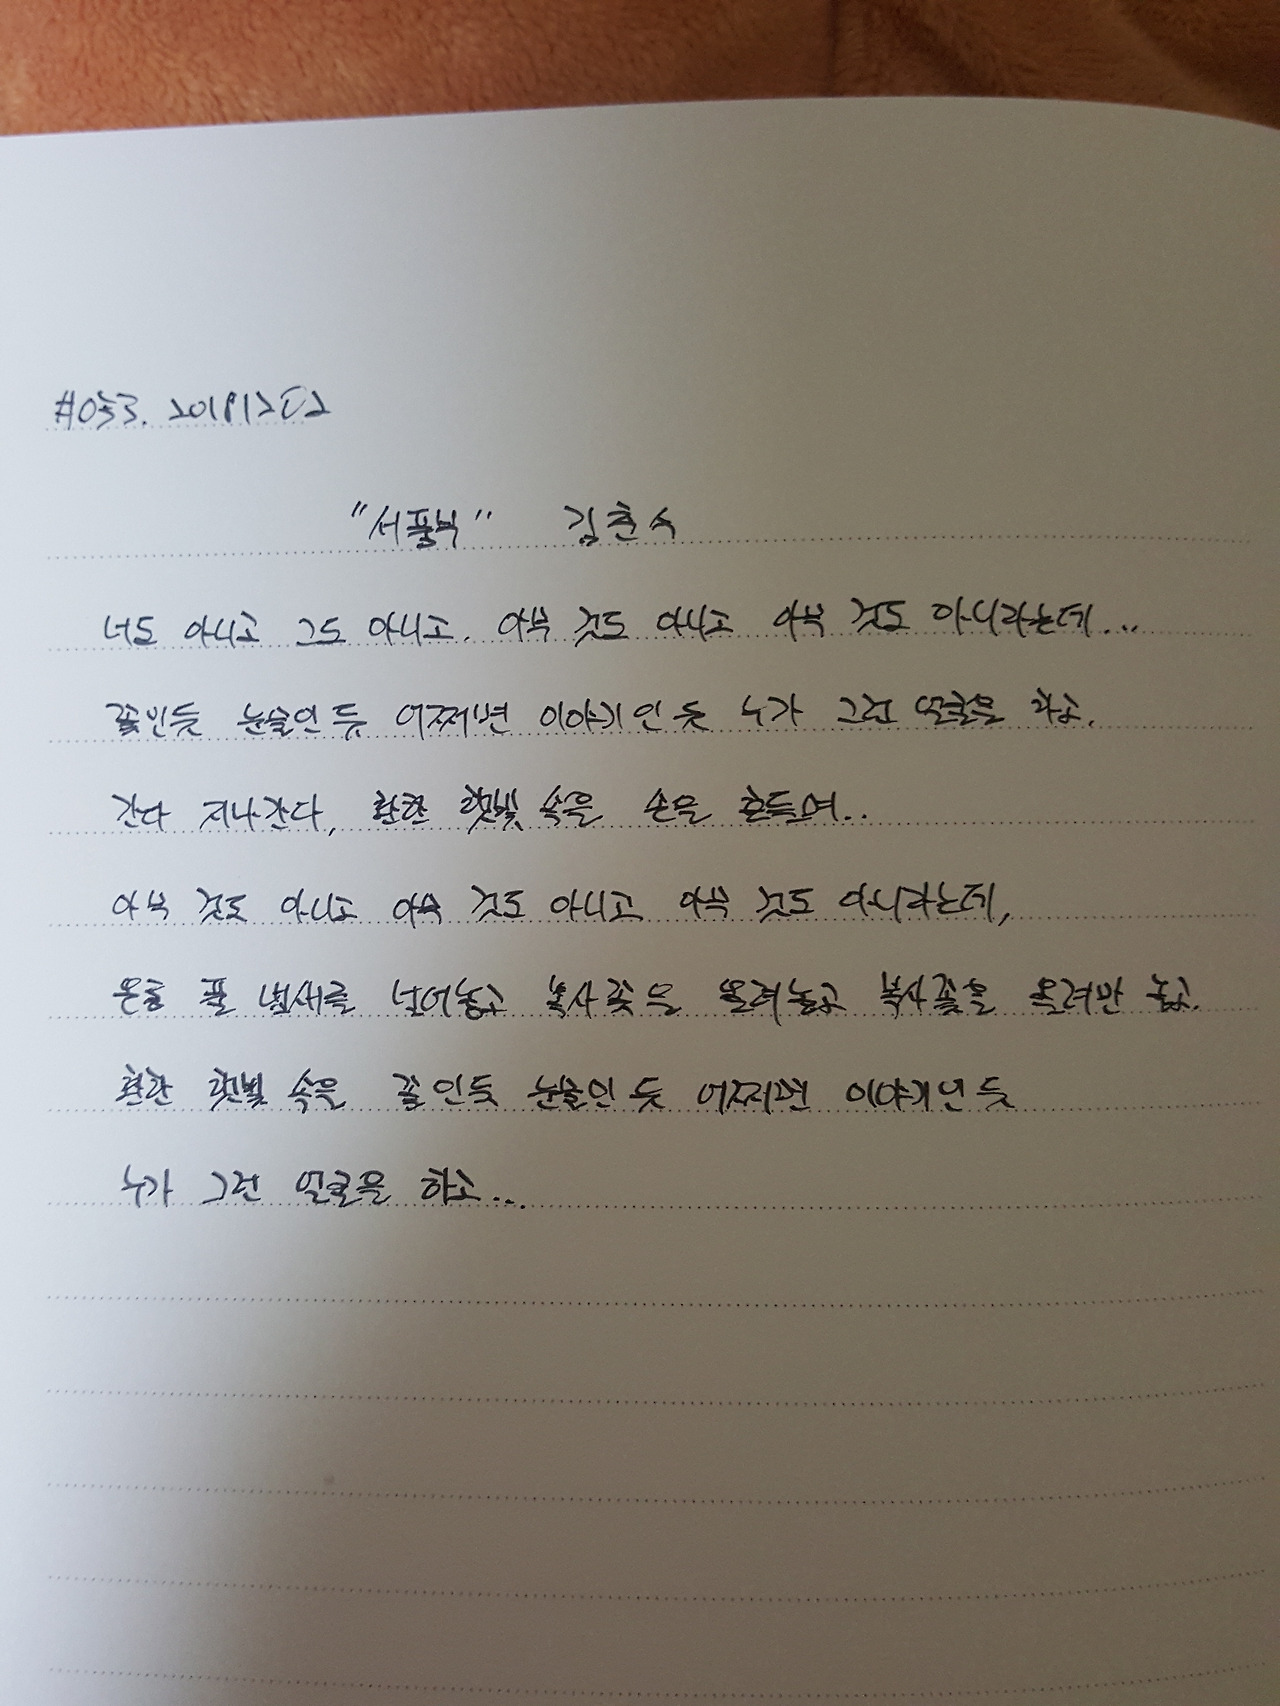 #053. 20181202
"서풍부" 김춘수
너도 아니고 그도 아니고. 아무 것도 아니고 아무 것도 아니라는데...
꽃인듯 눈물인 듯 어쩌면 이야기인 듯 누가 그런 얼굴을 하고.
간다 지나간다, 환한 햇빛 속을 손을 흔들며..
아무 것도 아니고 아무 것도 아니고 아무 것도 아니라는데,
온통 풀 냄새를 널어놓고 복사꽃을 울려놓고 복사꽃을 울려만 놓고.
환한 햇빛 속을 꽃인듯 눈물인 듯 어쩌면 이야기인 듯
누가 그런 얼굴을 하고...